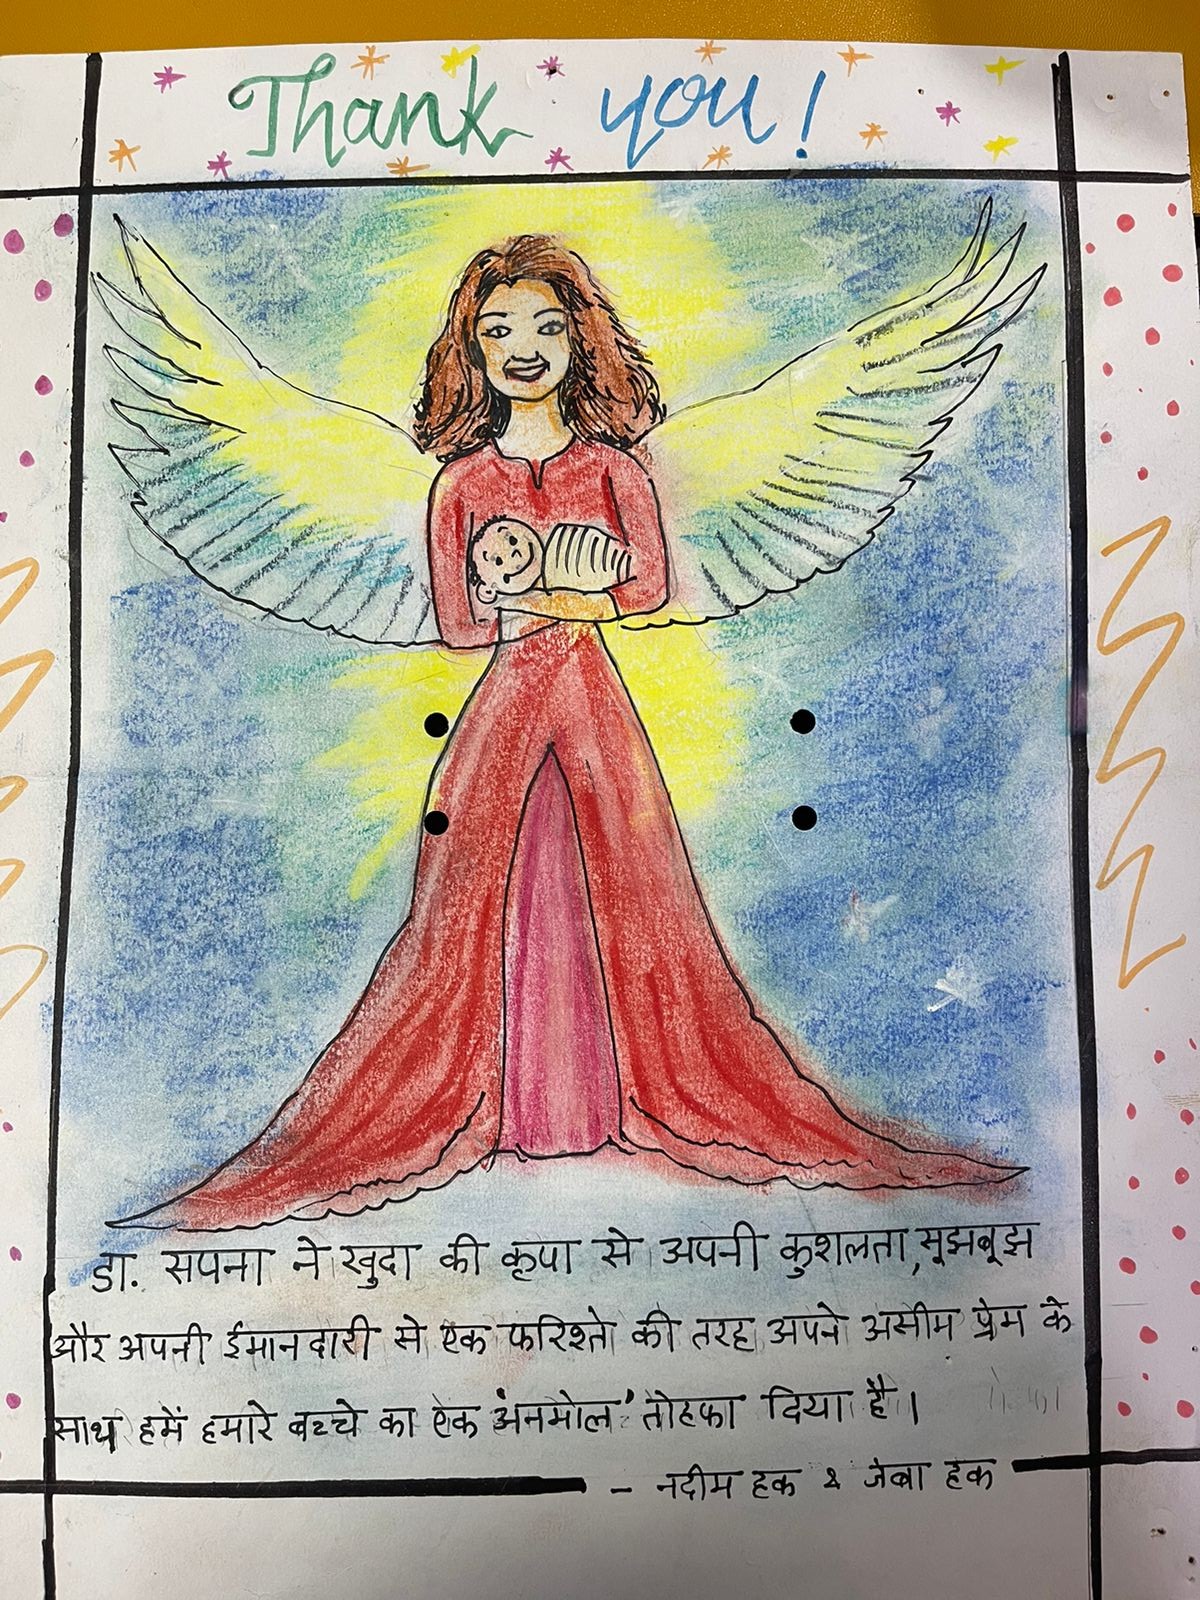 Thank you!
डा. सपना ने खुदा की कृपा से अपनी कुशलता, सूझबूझ
और अपनी ईमानदारी से एक फरिश्ते की तरह अपने असीम प्रेम के
साथ हमें हमारे बच्चे का एक 'अनमोल' तोहफा दिया है।
- नदीम हक & जेबा हक